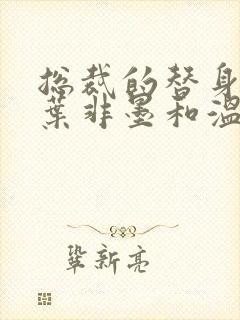 总裁的替身
葉非墨和温
鞏新亮